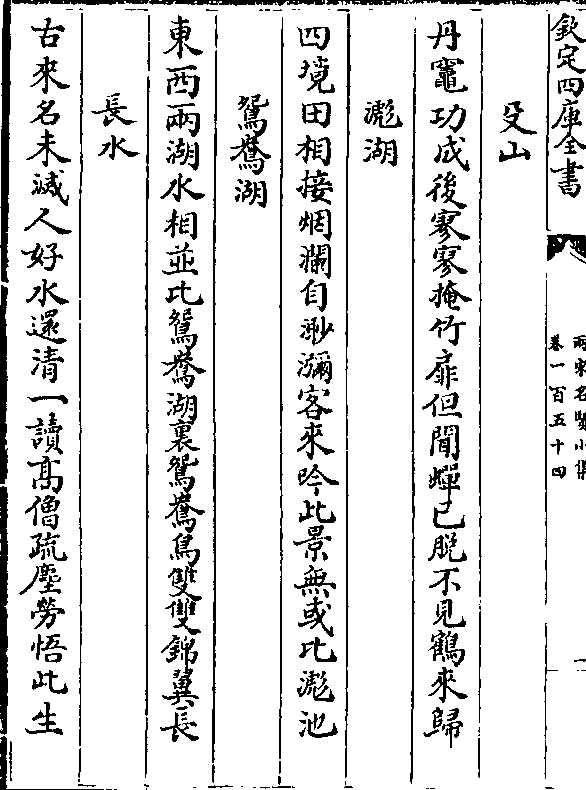 欽定四庫全書
兩宋名賢小集
卷一百五十四
一
殳山
丹竈功成後寥寥掩竹扉但聞蟬已脫不見鶴來歸
滮湖
四境田相接烟瀾自渺瀰客來吟此景無或比滮池
鴛鴦湖
東西兩湖水相並比鴛鴦湖裏鴛鴦鳥雙雙錦翼長
長水
古來名未滅人好水還清一讀髙僧疏塵勞悟此生